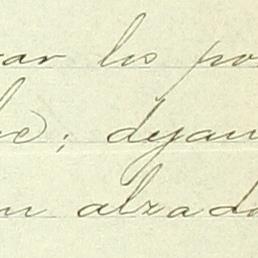 ar los po
he; dejan
n alzado